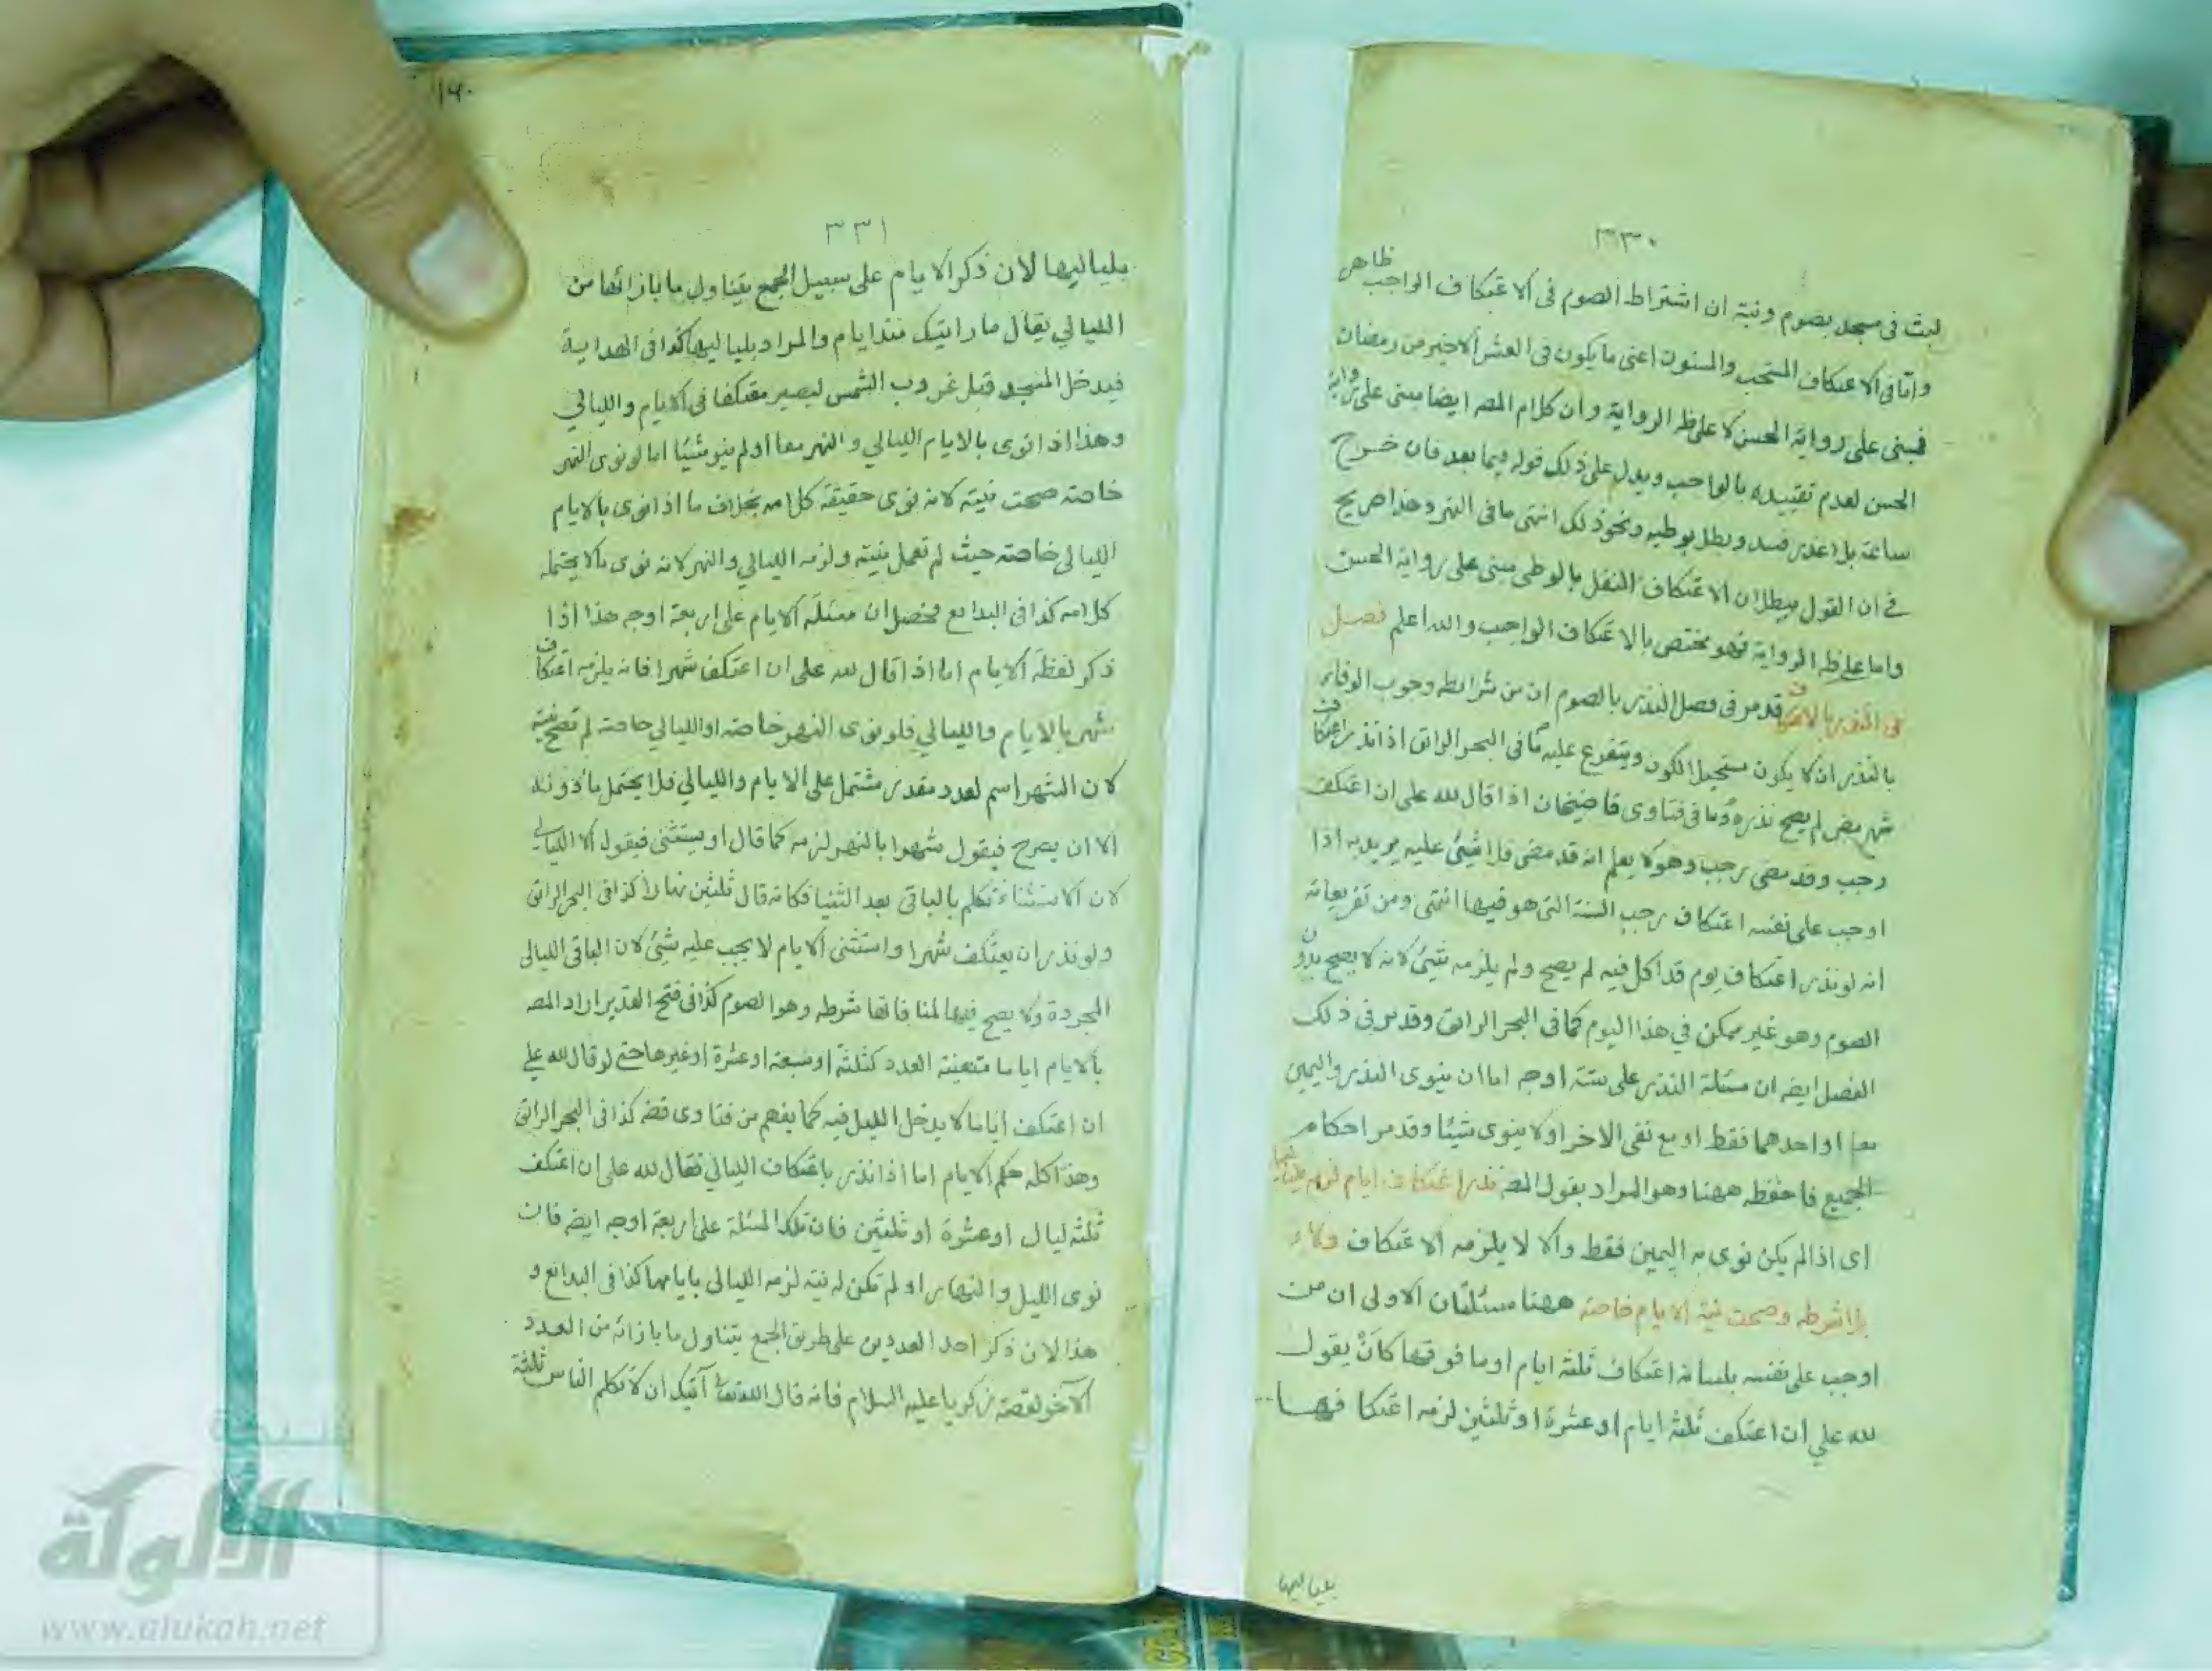 ٣٣٠
لبث في مسجد بصوم ونية ان اشتراط الصوم في الاعتكاف الواجب ظاهر
واما في الاعتكاف المستحب والمسنون اعنى ما يكون في العشر الاخير من رمضان
فمبنى على رواية الحسن لا على ظ الرواية وان كلام المص ايضا مبنى على رواية
الحسن لعدم تقييده بالواجب ويدل على ذلك قوله فيما بعد فان خرج
ساعة بلا عذر فسد وبطل بوطيه ونحو ذلك انتهى ما في النهر وهذا صريح
في ان القول ببطلان الاعتكاف النفل بالوطى مبنى على رواية الحسن
واما على ظ الرواية فهو مختص بالاعتكاف الواجب والله اعلم فصل
في النذر بالاعتكاف قد مر في فصل النذر بالصوم ان من شرائط وجوب الوفاء
بالنذر ان لا يكون مستحيل الكون ويتفرع عليه كما في البحر الرائق اذا نذر اعتكاف
شهر مضى لم يصح نذره وما في فتاوى قاضيخان اذا قال لله على ان اعتكف
رجب وقد مضى رجب وهو لا يعلم انه قد مضى فلا شيئ عليه يريد به اذا
اوجب على نفسه اعتكاف رجب السنة التى هو فيها انتهى ومن تفريعاته
انه لو نذر اعتكاف يوم قد اكل فيه لم يصح ولم يلزمه شيئ لانه لا يصح بدون
الصوم وهو غير ممكن في هذا اليوم كما في البحر الرائق وقد مر في ذلك
الفصل ايضه ان مسئلة النذر على ستة اوجه اما ان ينوى النذر واليمين
معا او احدهما فقط او مع نفى الاخر او لا ينوى شيئا وقد مر احكام
الجميع فاحفظه ههنا وهو المراد بقول المصه نذر اعتكاف ايام لزمه بلياليها
اى اذا لم يكن نوى به اليمين فقط والا لا يلزمه الاعتكاف ولاء
بلا شرطه وصحت نية الايام خاصة ههنا مسئلتان الاولى ان من
اوجب على نفسه بلسانه اعتكاف ثلثة ايام او ما فوقها كانْ يقول
لله علي ان اعتكف ثلثة ايام او عشرة او ثلثين لزمه اعتكافها
بلياليها
١٦٠
٣٣١
بلياليها لان ذكر الايام على سبيل الجمع يتناول ما بازائها من
الليالي يقال ما رايتك منذ ايام والمراد بلياليها كذا في الهداية
فيدخل المسجد قبل غروب الشمس ليصير معتكفا في الايام والليالي
وهذا اذا نوى بالايام الليالي والنهر معا او لم ينو شيئا اما لو نوى النهر
خاصة صحت نيته لانه نوى حقيقة كلامه بخلاف ما اذا نوى بالايام
الليالى خاصة حيث لم تعمل نيته ولزمه الليالي والنهر لانه نوى ما لا يحتمله
كلامه كذا في البدائع فحصل ان مسئلة الايام على اربعة اوجه هذا اذا
ذكر لفظة الايام اما اذا قال لله على ان اعتكف شهرا فانه يلزمه اعتكاف
شهر بالايام والليالي فلو نوى النهر خاصة او الليالي خاصة لم تصح نيته
لان الشهر اسم لعدد مقدر مشتمل على الايام والليالي فلا يحتمل ما دونه
الا ان يصرح فيقول شهرا بالنهر لزمه كما قال او يستثنى فيقول الا الليالي
لان الاستثناء تكلم بالباقي بعد الثنيا فكانه قال ثلثين نهارا كذا في البحر الرائق
ولو نذر ان يعتكف شهرا واستثنى الايام لا يجب عليه شيئ لان الباقى الليالى
المجردة ولا يصح فيها لمنافاتها شرطه وهو الصوم كذا في فتح القدير اراد المصه
بالايام اياما متعينة العدد كثلثة او سبعة او عشرة او غيرها حتى لو قال لله على
ان اعتكف اياما لا يدخل الليل فيه كما يفهم من فتاوى قضه كذا في البحر الرائق
وهذا كله حكم الايام اما اذا نذر باعتكاف الليالي فقال لله على ان اعتكف
ثلثة ليال او عشرة او ثلثين فان تلك المسئلة على اربعة اوجه ايضه فان
نوى الليل والنهار او لم تكن له نية لزمه الليالى بايامها كذا في البدائع و
هذا لان ذكر احد العددين على طريق الجمع يتناول ما بازائه من العدد
الآخر لقصة زكريا عليه السلام فانه قال الله تعالى آيتك ان لا تكلم الناس ثلثة
الألوكة
www.alukah.net